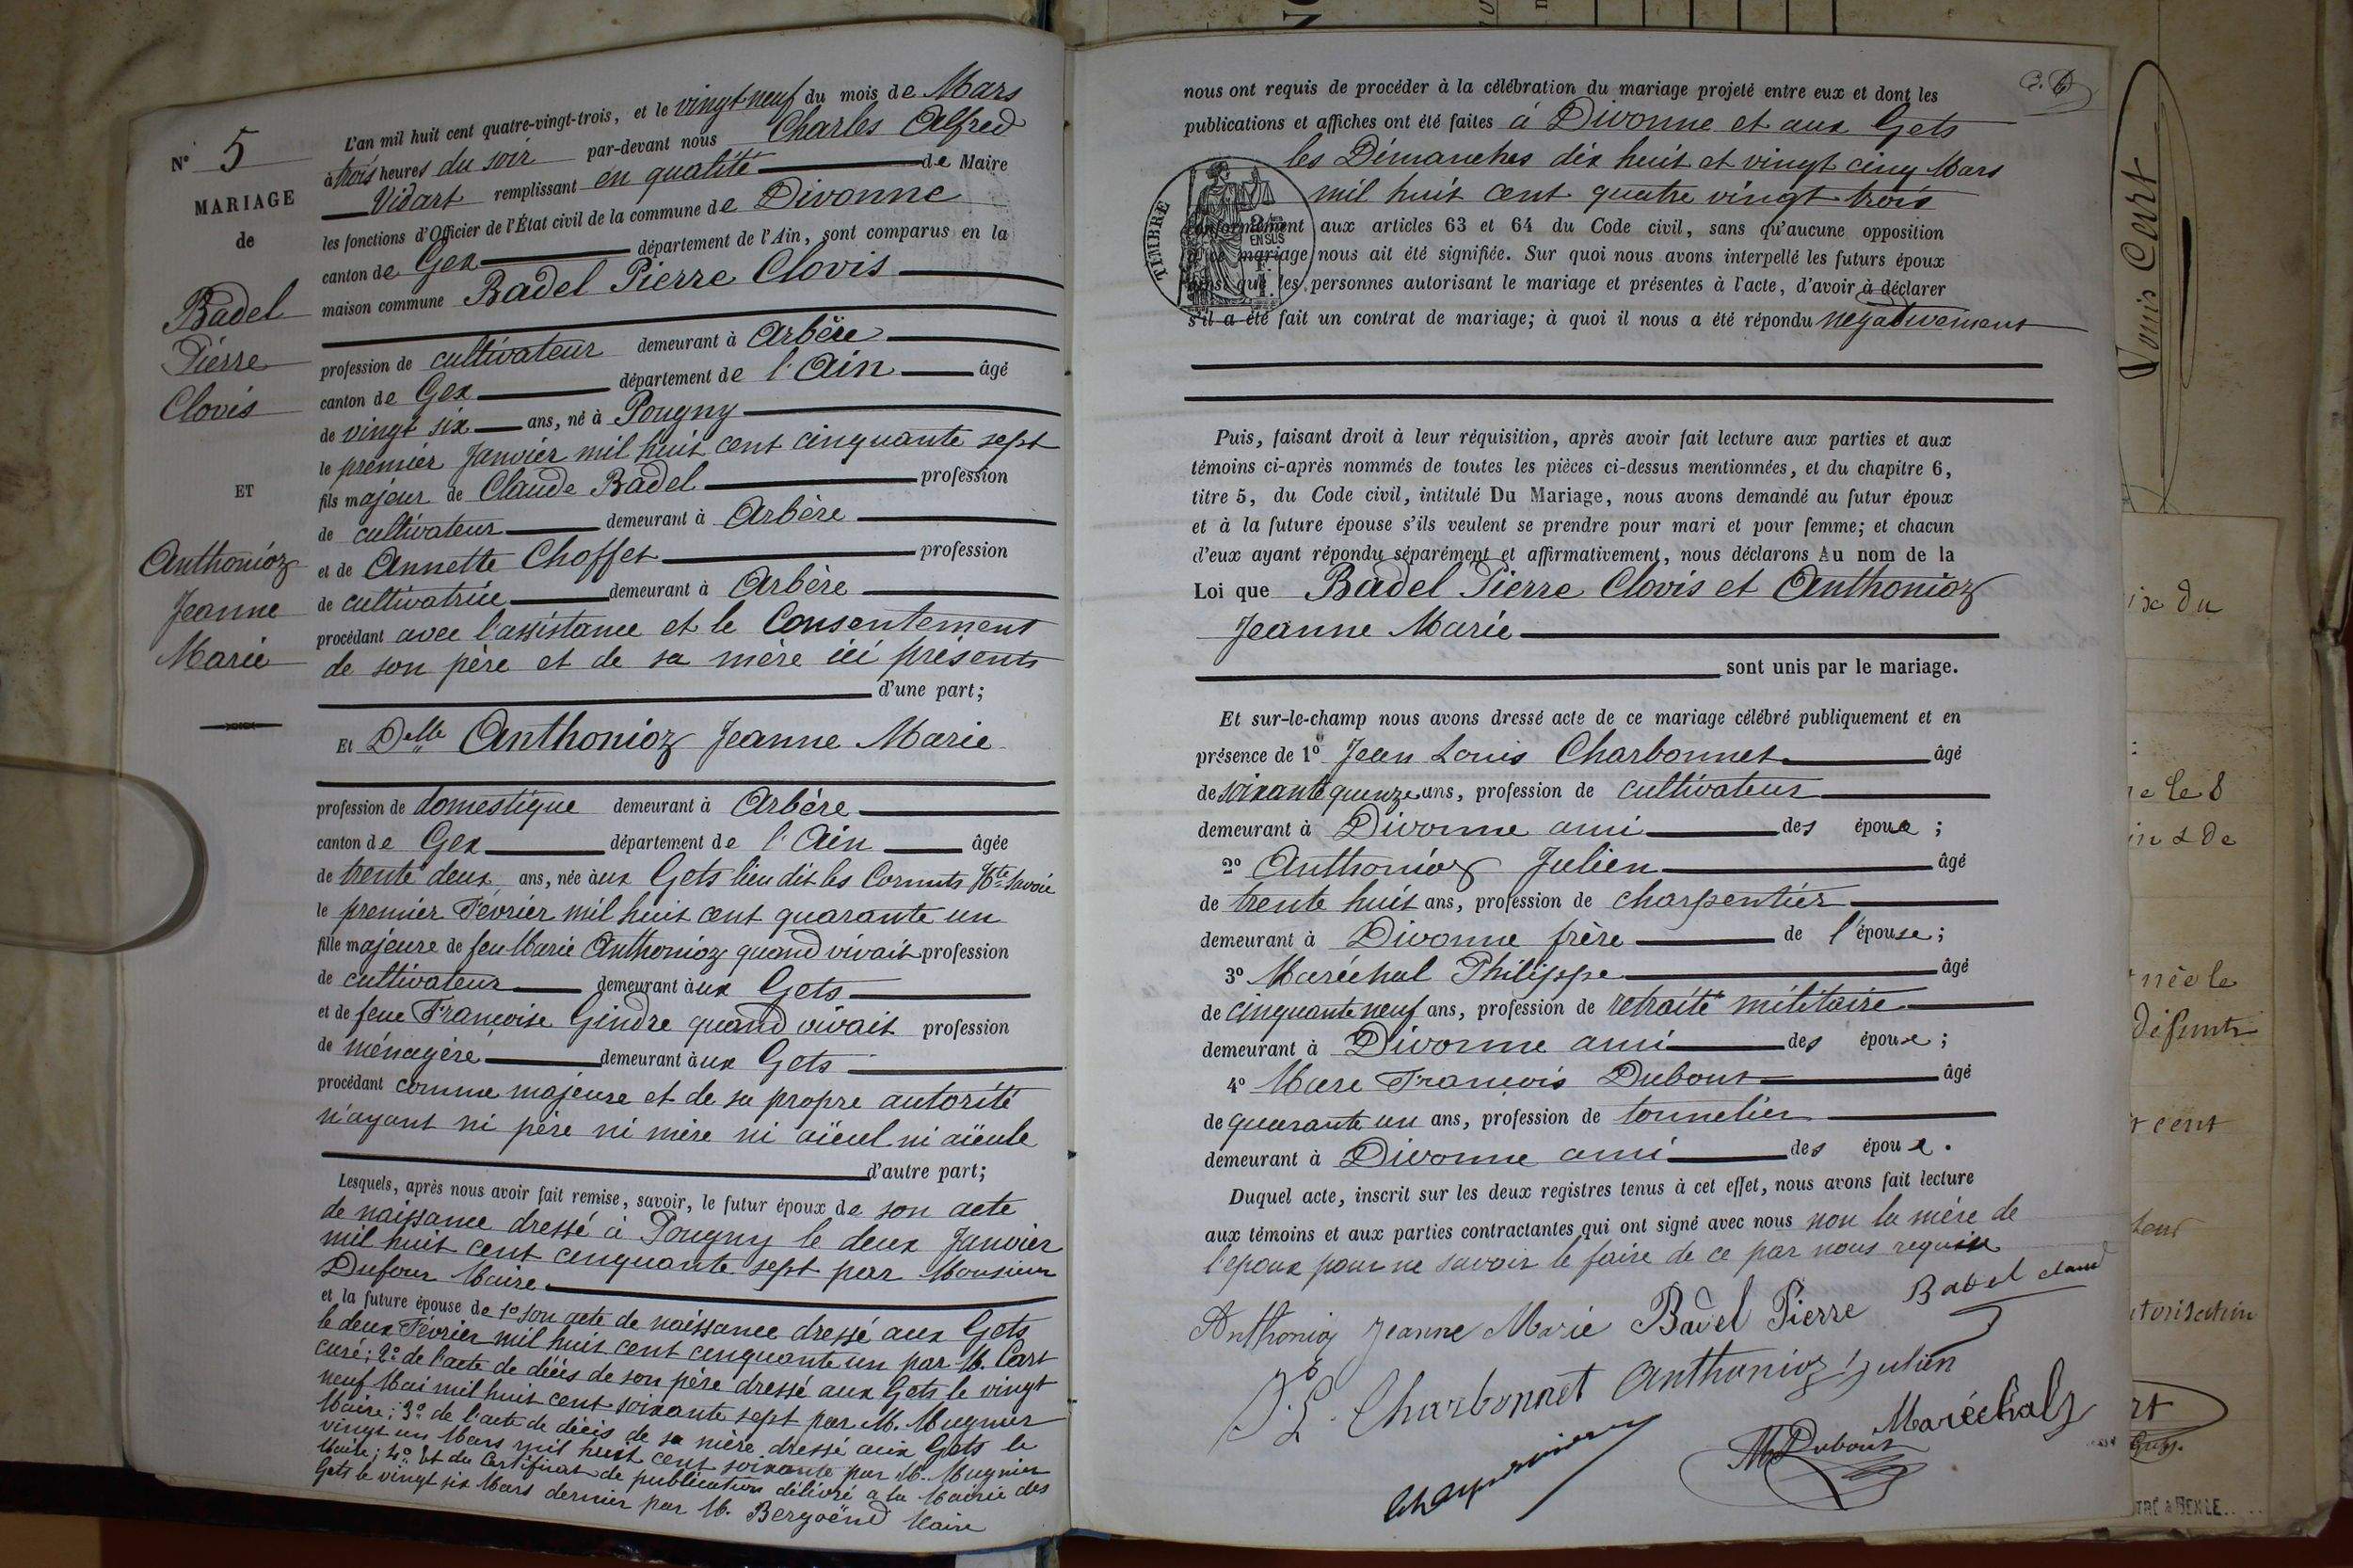 N° 5
MARIAGE
de
Badel
Pierre
Clovis
ET
Anthonioz
Jeanne
Marie
L'an mil huit cent quatre-vingt-trois, et le vingt neuf du mois de Mars
à trois heures du soir par-devant nous Charles Alfred
Vidart remplissant en qualité de Maire
les fonctions d'Officier de l'État civil de la commune de Divonne
canton de Gex département de l'Ain, sont comparus en la
maison commune Badel Pierre Clovis
profession de cultivateur demeurant à Arbère
canton de Gex département de l'Ain âgé
de vingt six ans, né à Pougny
le premier Janvier mil huit cent cinquante sept
fils majeur de Claude Badel profession
de cultivateur demeurant à Arbère
et de Annette Choffet profession
de cultivatrice demeurant à Arbère
procédant avec l'assistance et le Consentement
de son père et de sa mère ici présents
d'une part;
Et Delle Anthonioz Jeanne Marie
profession de domestique demeurant à Arbère
canton de Gex département de l'Ain âgée
de trente deux ans, née aux Gets lieu dit les Cornuts Hte Savoie
le premier Février mil huit cent quarante un
fille majeure de feu Marie Anthonioz quand vivait profession
de cultivateur demeurant aux Gets
et de feue Françoise Gindre quand vivait profession
de ménagère demeurant aux Gets
procédant comme majeure et de sa propre autorité
n'ayant ni père ni mère ni aïeul ni aïeule
d'autre part;
Lesquels, après nous avoir fait remise, savoir, le futur époux de son acte
de naissance dressé à Pougny le deux Janvier
mil huit cent cinquante sept par Monsieur
Dufour Maire
et la future épouse de 1° son acte de naissance dressé aux Gets
le deux Février mil huit cent cinquante un par M. Cart
curé; 2° de l'acte de décès de son père dressé aux Gets le vingt
neuf Mai mil huit cent soixante sept par M. Mugnier
Maire; 3° de l'acte de décès de sa mère dressé aux Gets le
vingt un Mars mil huit cent soixante par M. Mugnier
Maire; 4° Et du Certificat de publication délivré à la Mairie des
Gets le vingt six Mars dernier par M. Bergoënd Maire
nous ont requis de procéder à la célébration du mariage projeté entre eux et dont les
publications et affiches ont été faites à Divonne et aux Gets
les Dimanches dix huit et vingt cinq Mars
mil huit cent quatre vingt trois
TIMBRE
conformément aux articles 63 et 64 du Code civil, sans qu'aucune opposition
à ce mariage nous ait été signifiée. Sur quoi nous avons interpellé les futurs époux
ainsi que les personnes autorisant le mariage et présentes à l'acte, d'avoir à déclarer
s'il a été fait un contrat de mariage; à quoi il nous a été répondu négativement
Puis, faisant droit à leur réquisition, après avoir fait lecture aux parties et aux
témoins ci-après nommés de toutes les pièces ci-dessus mentionnées, et du chapitre 6,
titre 5, du Code civil, intitulé Du Mariage, nous avons demandé au futur époux
et à la future épouse s'ils veulent se prendre pour mari et pour femme; et chacun
d'eux ayant répondu séparément et affirmativement, nous déclarons Au nom de la
Loi que Badel Pierre Clovis et Anthonioz
Jeanne Marie
sont unis par le mariage.
Et sur-le-champ nous avons dressé acte de ce mariage célébré publiquement et en
présence de 1° Jean Louis Charbonnet âgé
de soixante quinze ans, profession de cultivateur
demeurant à Divonne ami des époux;
2° Anthonioz Julien âgé
de trente huit ans, profession de charpentier
demeurant à Divonne frère de l'épouse;
3° Maréchal Philippe âgé
de cinquante neuf ans, profession de retraité militaire
demeurant à Divonne ami des époux;
4° Marc François Dubout âgé
de quarante un ans, profession de tonnelier
demeurant à Divonne ami des époux.
Duquel acte, inscrit sur les deux registres tenus à cet effet, nous avons fait lecture
aux témoins et aux parties contractantes qui ont signé avec nous non la mère de
l'époux pour ne savoir le faire de ce par nous requise
Anthonioz Jeanne Marie Badel Pierre Badel claud
J. L. Charbonnet Anthonioz julien
Maréchal
Dubout
Louis Cert
ix du
le 8
de
née le
défunt
cent